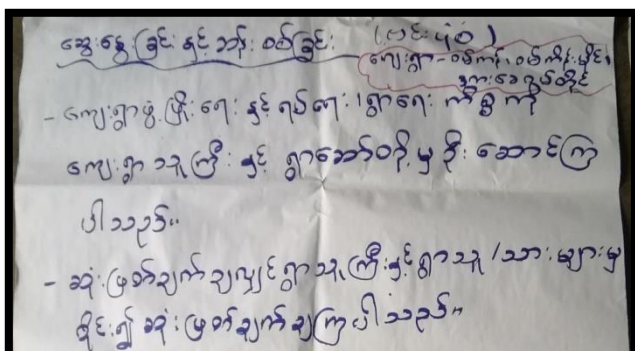 ဆွေးနွေးခြင်း နှင့် ဘန်းစစ်ခြင်း (ဟင်းပုံစံ)
ကျေးရွာ - ဝမ်ကန်၊ ဝမ်ကိန်းမိုင်၊
- ကျေးရွာဖွံ့ဖြိုးရေး နှင့် ရပ်ရေး/ရွာရေး ကိစ္စကို
ကျေးရွာသူကြီး နှင့် ရွာဆော်တို့မှ ဦးဆောင်ကြ
ပါသည်။
- ဆုံးဖြတ်ချက်ချလျှင် ရွာသူကြီးနှင့် ရွာသူ/သားများမှ
ဝိုင်း၍ ဆုံးဖြတ်ချက်ချကြပါသည်။